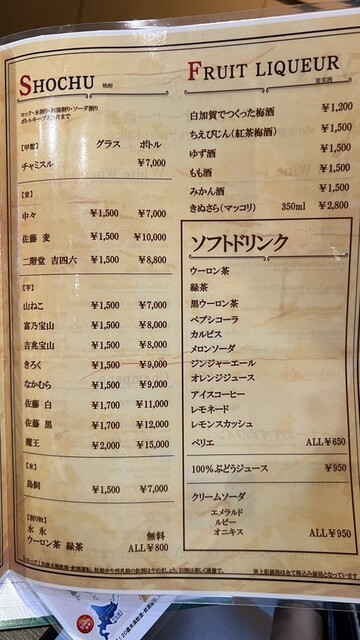 SHOCHU 焼酎
ロック・水割り・お湯割り・ソーダ割り
【甲類】 グラス ボトル
チャミスル ¥7,000
【麦】
中々 ¥1,500 ¥7,000
佐藤 麦 ¥1,500 ¥10,000
二階堂 吉四六 ¥1,500 ¥8,800
【芋】
山ねこ ¥1,500 ¥7,000
富乃宝山 ¥1,500 ¥8,000
吉兆宝山 ¥1,500 ¥8,000
きろく ¥1,500 ¥9,000
なかむら ¥1,500 ¥9,000
佐藤 白 ¥1,700 ¥11,000
佐藤 黒 ¥1,700 ¥12,000
魔王 ¥2,000 ¥15,000
【米】
鳥飼 ¥1,500 ¥7,000
【割り物】
水 氷 無料
ウーロン茶 緑茶 ALL¥800
FRUIT LIQUEUR 果実酒
白加賀でつくった梅酒 ¥1,200
ちえびじん(紅茶梅酒) ¥1,500
ゆず酒 ¥1,500
もも酒 ¥1,500
みかん酒 ¥1,500
きぬさら(マッコリ) 350ml ¥2,800
ソフトドリンク
ウーロン茶
緑茶
黒ウーロン茶
ペプシコーラ
カルピス
メロンソーダ
ジンジャーエール
オレンジジュース
アイスコーヒー
レモネード
レモンスカッシュ
ペリエ ALL¥650
100%ぶどうジュース ¥950
クリームソーダ
エメラルド
ルビー
オニキス ALL¥950
※上記価格は全て税込み価格となっています